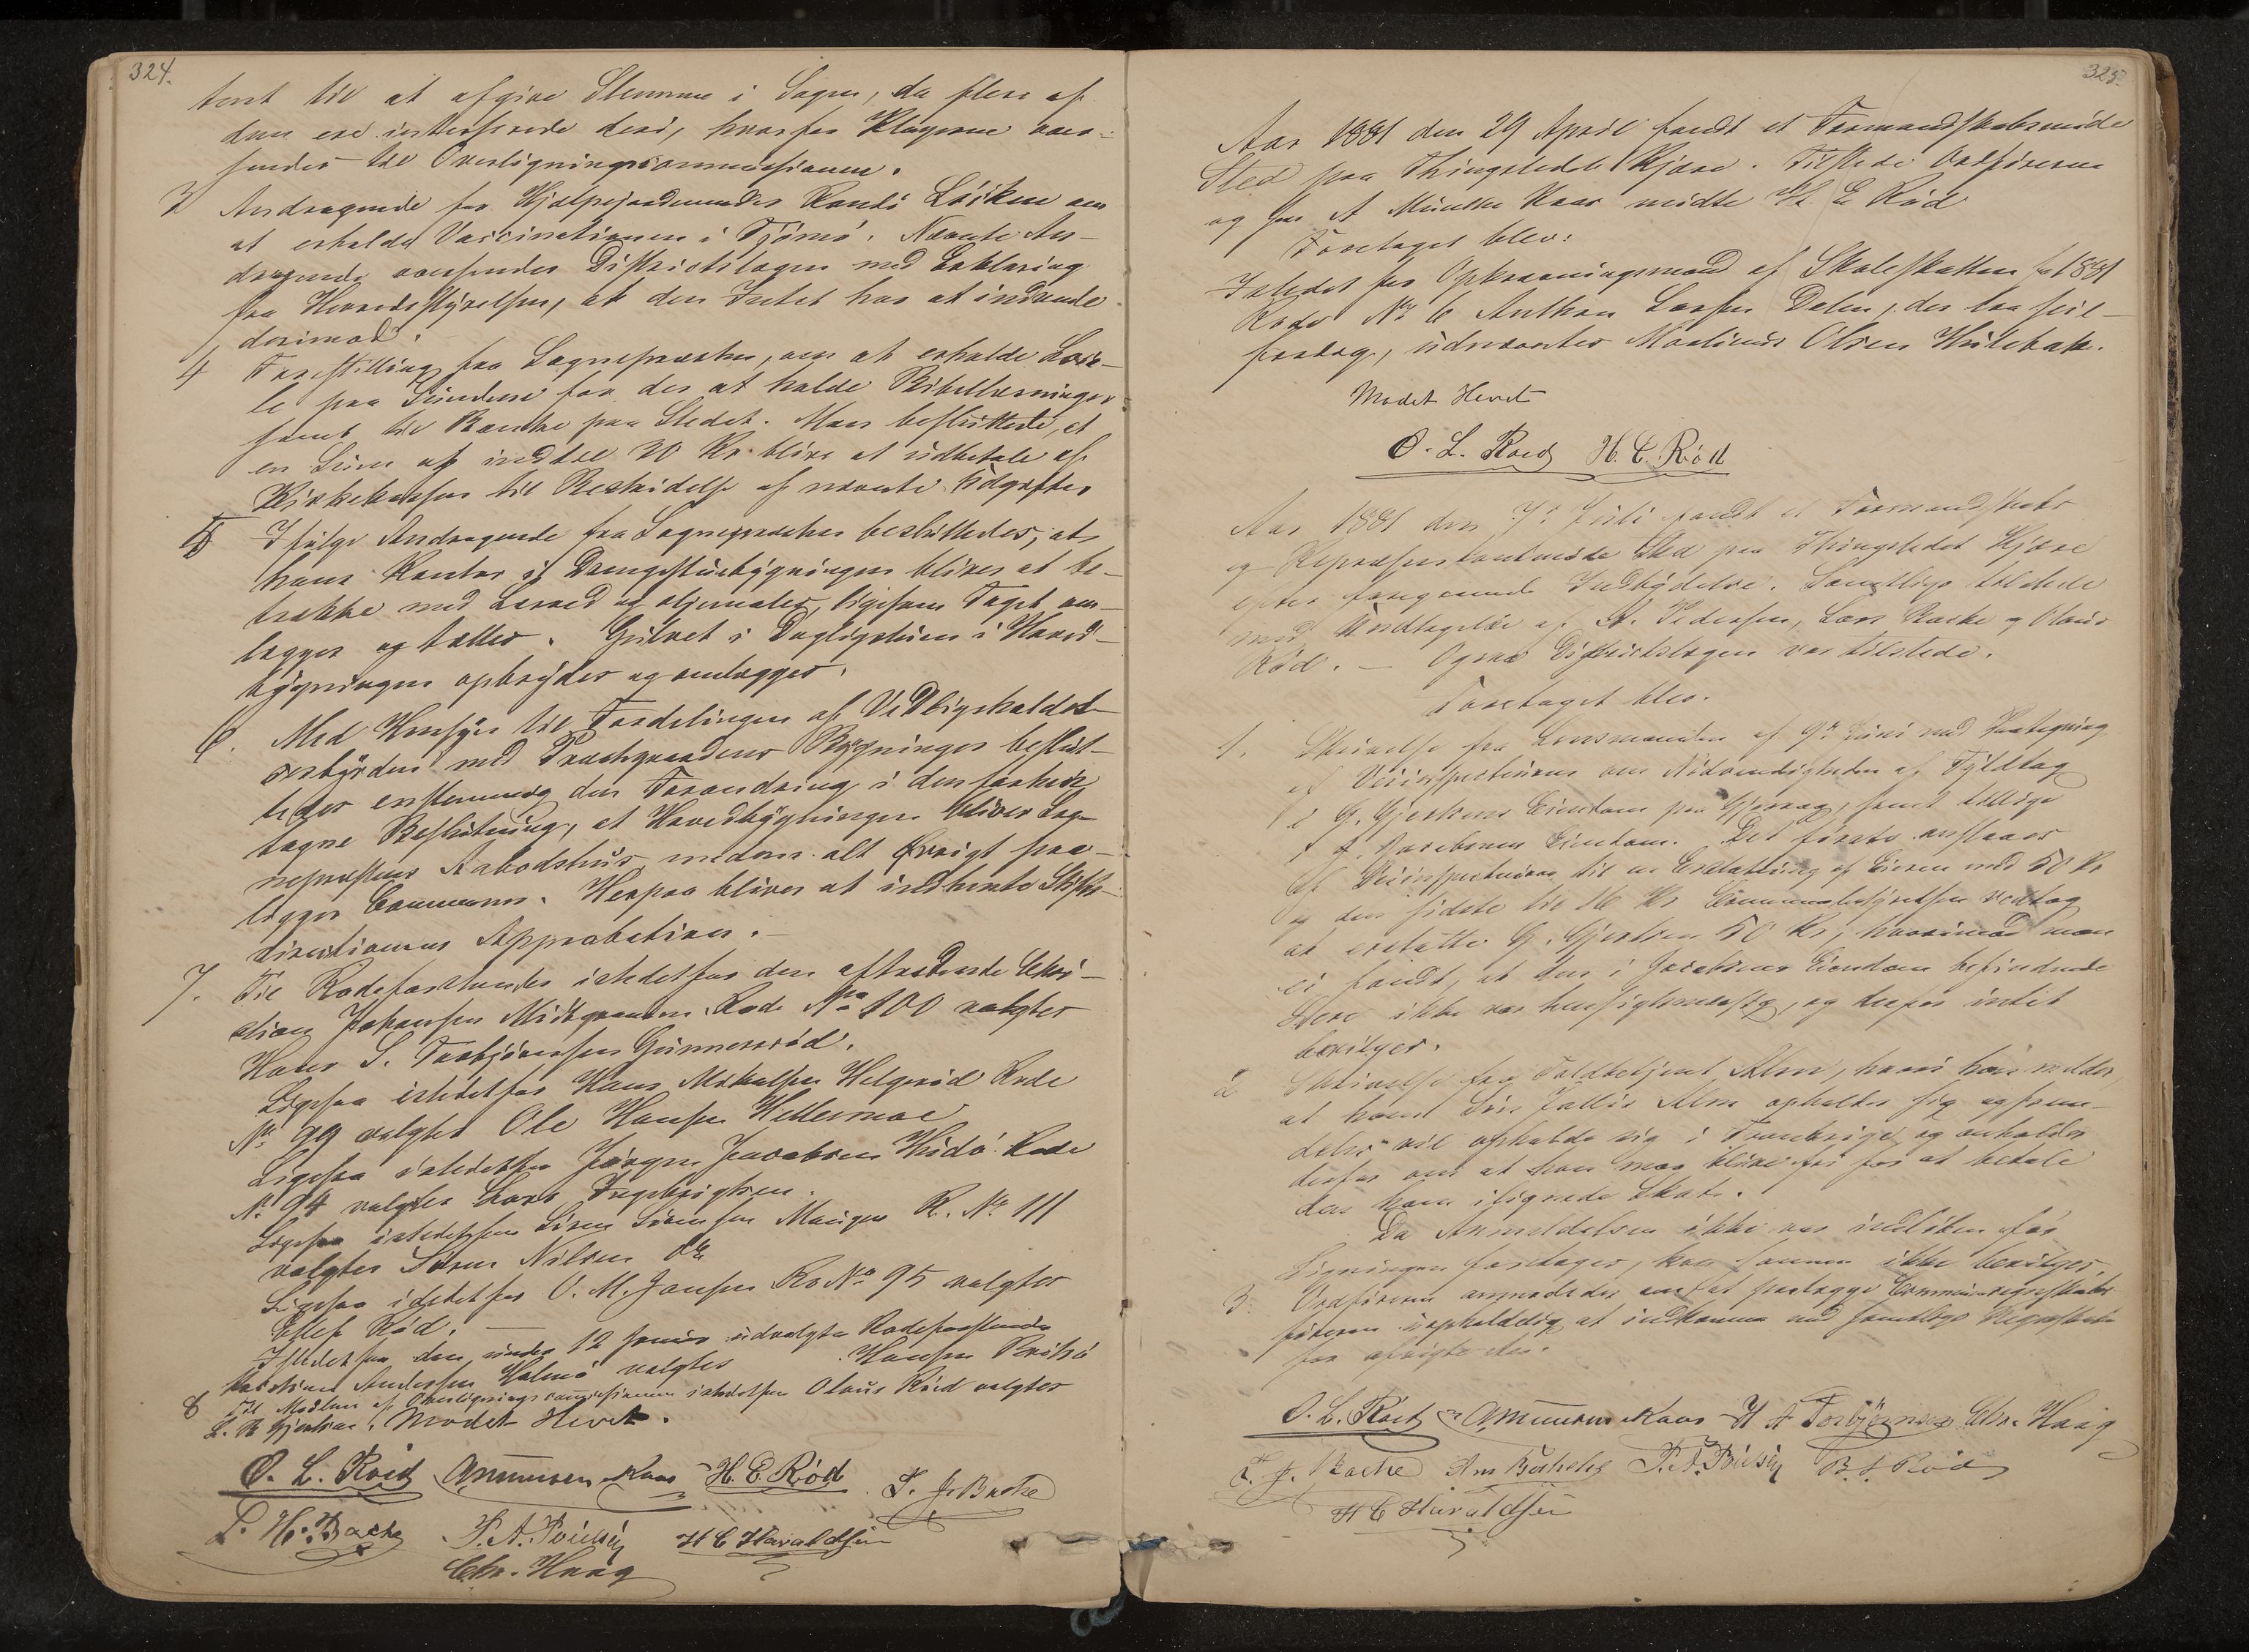 324.
tent til at afgive Stemme i Sagen, da flere af
dem ere interesserede deri, hvorfor Klagerne over-
sendes til Overligningscommissionen.
3 Andragende fra Hjælpejordemoder Løiken om
at erholde Vaccinationen i Tjømø. Nævnte An-
dragende oversendes Districtslægen med Erklæring
fra Herredsstyrelsen, at den Intet har at indvende
derimod.
4 Forestilling fra Sognepræsten, om at erholde Loca-
le paa for der at holde Bibellæsninger
samt til Bænke paa Stedet. Man besluttede, at
en Sum af indtil 20 Kr bliver at udbetale af
Kirkekassen til Bestridelse af nævnte Udgifter
5 Ifølge Andragende fra Sognepræsten besluttedes, at
hans Kontor i Drengestuebygningen bliver at be-
trække med Lærred og oljemales, ligesom Taget om-
lægges og tættes. Gulvet i Dagligstuen i Hoved-
bygningen opbrydes og omlægges.
6. Med Hensyn til Fordelingen af Vedligeholdel-
sesbyrden med Præstegaardens Bygninger beslut-
tedes enstemmig den Forandring i den forhen
tagne Beslutning, at Hovedbygningen bliver Sog-
nepræstens Aabodshus medens alt Øvrigt paa-
ligger Communen. Herpaa bliver at indhente Stifts-
directionens Approbation.
7. Til Rodeforstander istedetfor den aftrædende Chri-
stian Johansen Midtgaarden Rode No 100 valgtes
Hans S. Torbjørnsen Gunnersrød.
Ligesaa istedetfor Hans Mikaelsen Helgerød Rode
No 99 valgtes Ole Hansen Hellemoe
Ligesaa istedetfor Jørgen Jacobsen Hudø Rode
No 94 valgtes Lars Ingebrigtsen.
Ligesaa istedetfor Søren Sørensen Maugen R. No 111
valgtes Søren Nilsen
Ligesaa istedetfor O. M. Jansen Ro No 95 valgtes
Ellef Rød.
Istedetfor den under 12 Januar udvalgte Rodeforstander
Kristian Andersen Holmø valgtes Hansen
8 Til Medlem af Overligningscommissionen istedetfor Olaus Rød valgtes
L. H. Gjertsen. Mødet Hevet.
O. L. Røed Amunsen Kaas H. E. Rød T. J. Bache
L. H. Bache P. A. H C Haraldsen
Chr. Haag
325.
Aar 1881 den 29 April fandt et Formandskabsmøde
Sted paa Thingstedet Kjære. Tilstede Ordføreren
og for A Kaas mødte H. E Rød
Foretaget blev:
Istedet for Opkrævningsmand af Skoleskatten for 1881
Rode No 6 Anthon Larsen Dalen, der laa seil-
færdig, udnævntes Martinus Olsen Hulebak.
Mødet Hevet
O. L. Røed H. E. Rød
Aar 1881 den 7de Juli fandt et Formandskabs
og Repræsentantmøde Sted paa Thingstedet Kjære
efter foregaaende Indbydelse. Samtlige tilstede
med Undtagelse af A. Pedersen, Lars Bache og Olaus
Rød. — Ogsaa Districtslægen var tilstede.
Foretaget blev.
1. Skrivelse fra Lensmanden af 9de Juni med Paategning
af Veiinspecteuren om Nødvendigheden af Fyldtag
i G. Gjertsens Eiendom paa samt tillige
i J. Jacobsens Eiendom. Det første ansaaes
af Veiinspecteuren til en Erstatning af Eieren med 50 Kr
og den sidste til 16 Kr. Communebestyrelsen vedtog
at erstatte G. Gjertsen 50 Kr, hvorimod man
ei fandt, at den i Jacobsens Eiendom befindende
Leere ikke var hensigtsmæssig, og derfor intet
bevilges.
2 Skrivelse fra Toldbetjent Alm, hvori han melder
at hans Søn Alm opholder sig og frem-
deles vil opholde sig i Frankrige og anholder
derfor om at han maa blive fri for at betale
den ham ilignede Skat.
Da Anmeldelsen ikke var indløben før
Ligningen foretoges, kan Saadan ikke bevilges.
3. Ordføreren anmodedes om at paalægge Communeregnskabs-
føreren uopholdelig at indkomme med samtlige Regnskaber
for
O. L. Røed Amunsen Kaas H A Torbjørnsen Chr. Haag
T. J. Bache P. A. B. J. Rød
H C Haraldsen